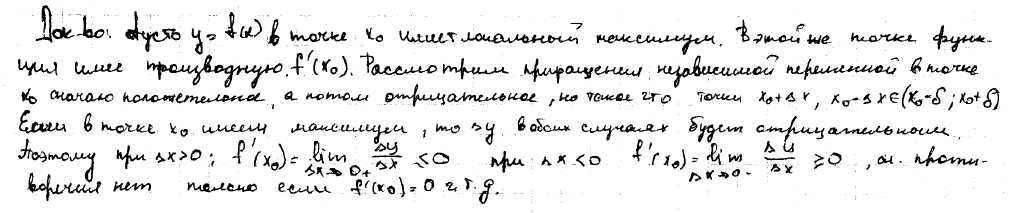 Док-во: Пусть y = f(x) в точке x₀ имеет локальный максимум. В этой же точке функ-
ция имее производную f'(x₀). Рассмотрим приращения независимой переменной в точке
x₀ сначало положительное, а потом отрицательное, но такое что точки x₀+Δx, x₀-Δx∈(x₀-δ; x₀+δ)
Если в точке x₀ имеем максимум, то Δy в обоих случаях будет отрицательным.
Поэтому при Δx>0; f'(x₀)= lim Δx→0+ Δy/Δx ≤0 при Δx<0 f'(x₀)= lim Δx→0- Δy/Δx ≥0, проти-
воречия нет только если f'(x₀)=0 ч.т.д.